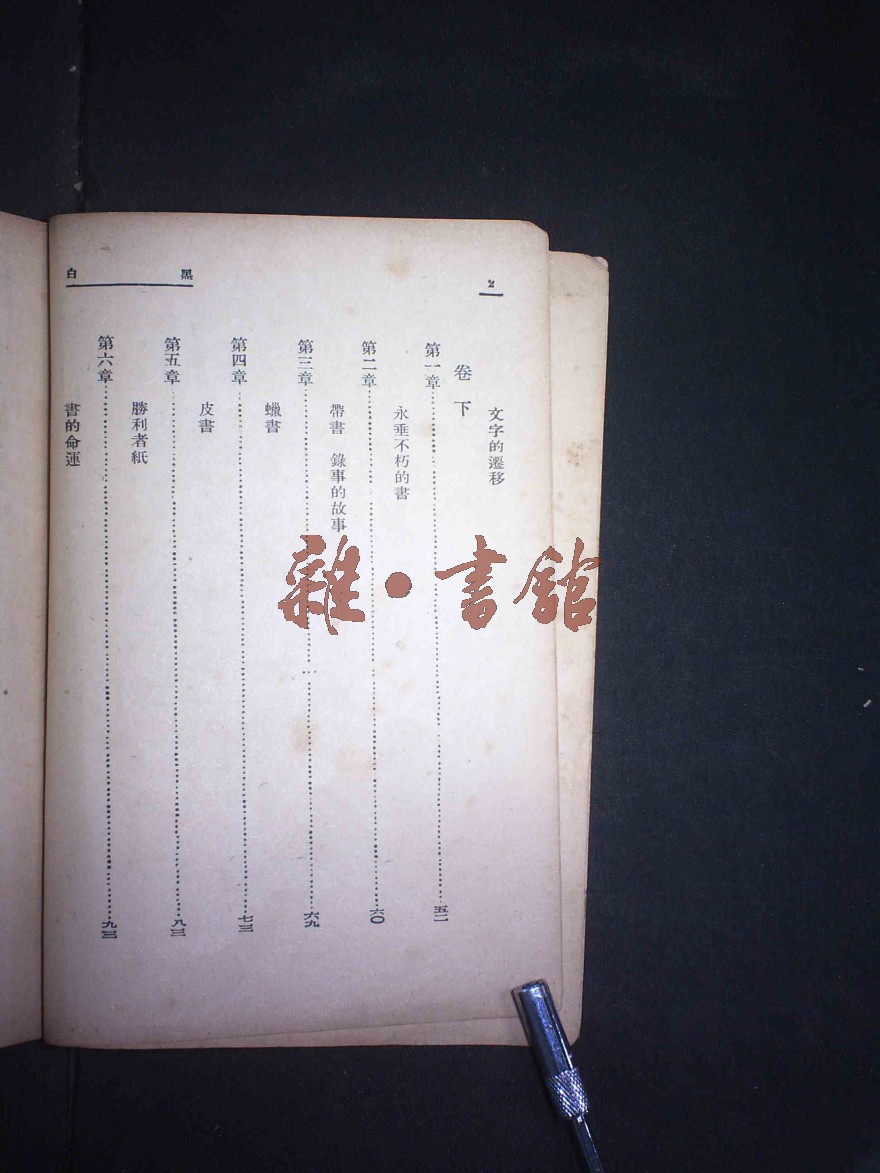 黑白
2
文字的遷移
卷下
第一章……五二
永垂不朽的書
第二章……六〇
帶書 錄事的故事
第三章……六九
蠟書
第四章……七三
皮書
第五章……八三
勝利者紙
第六章……九三
書的命運
雜·書館